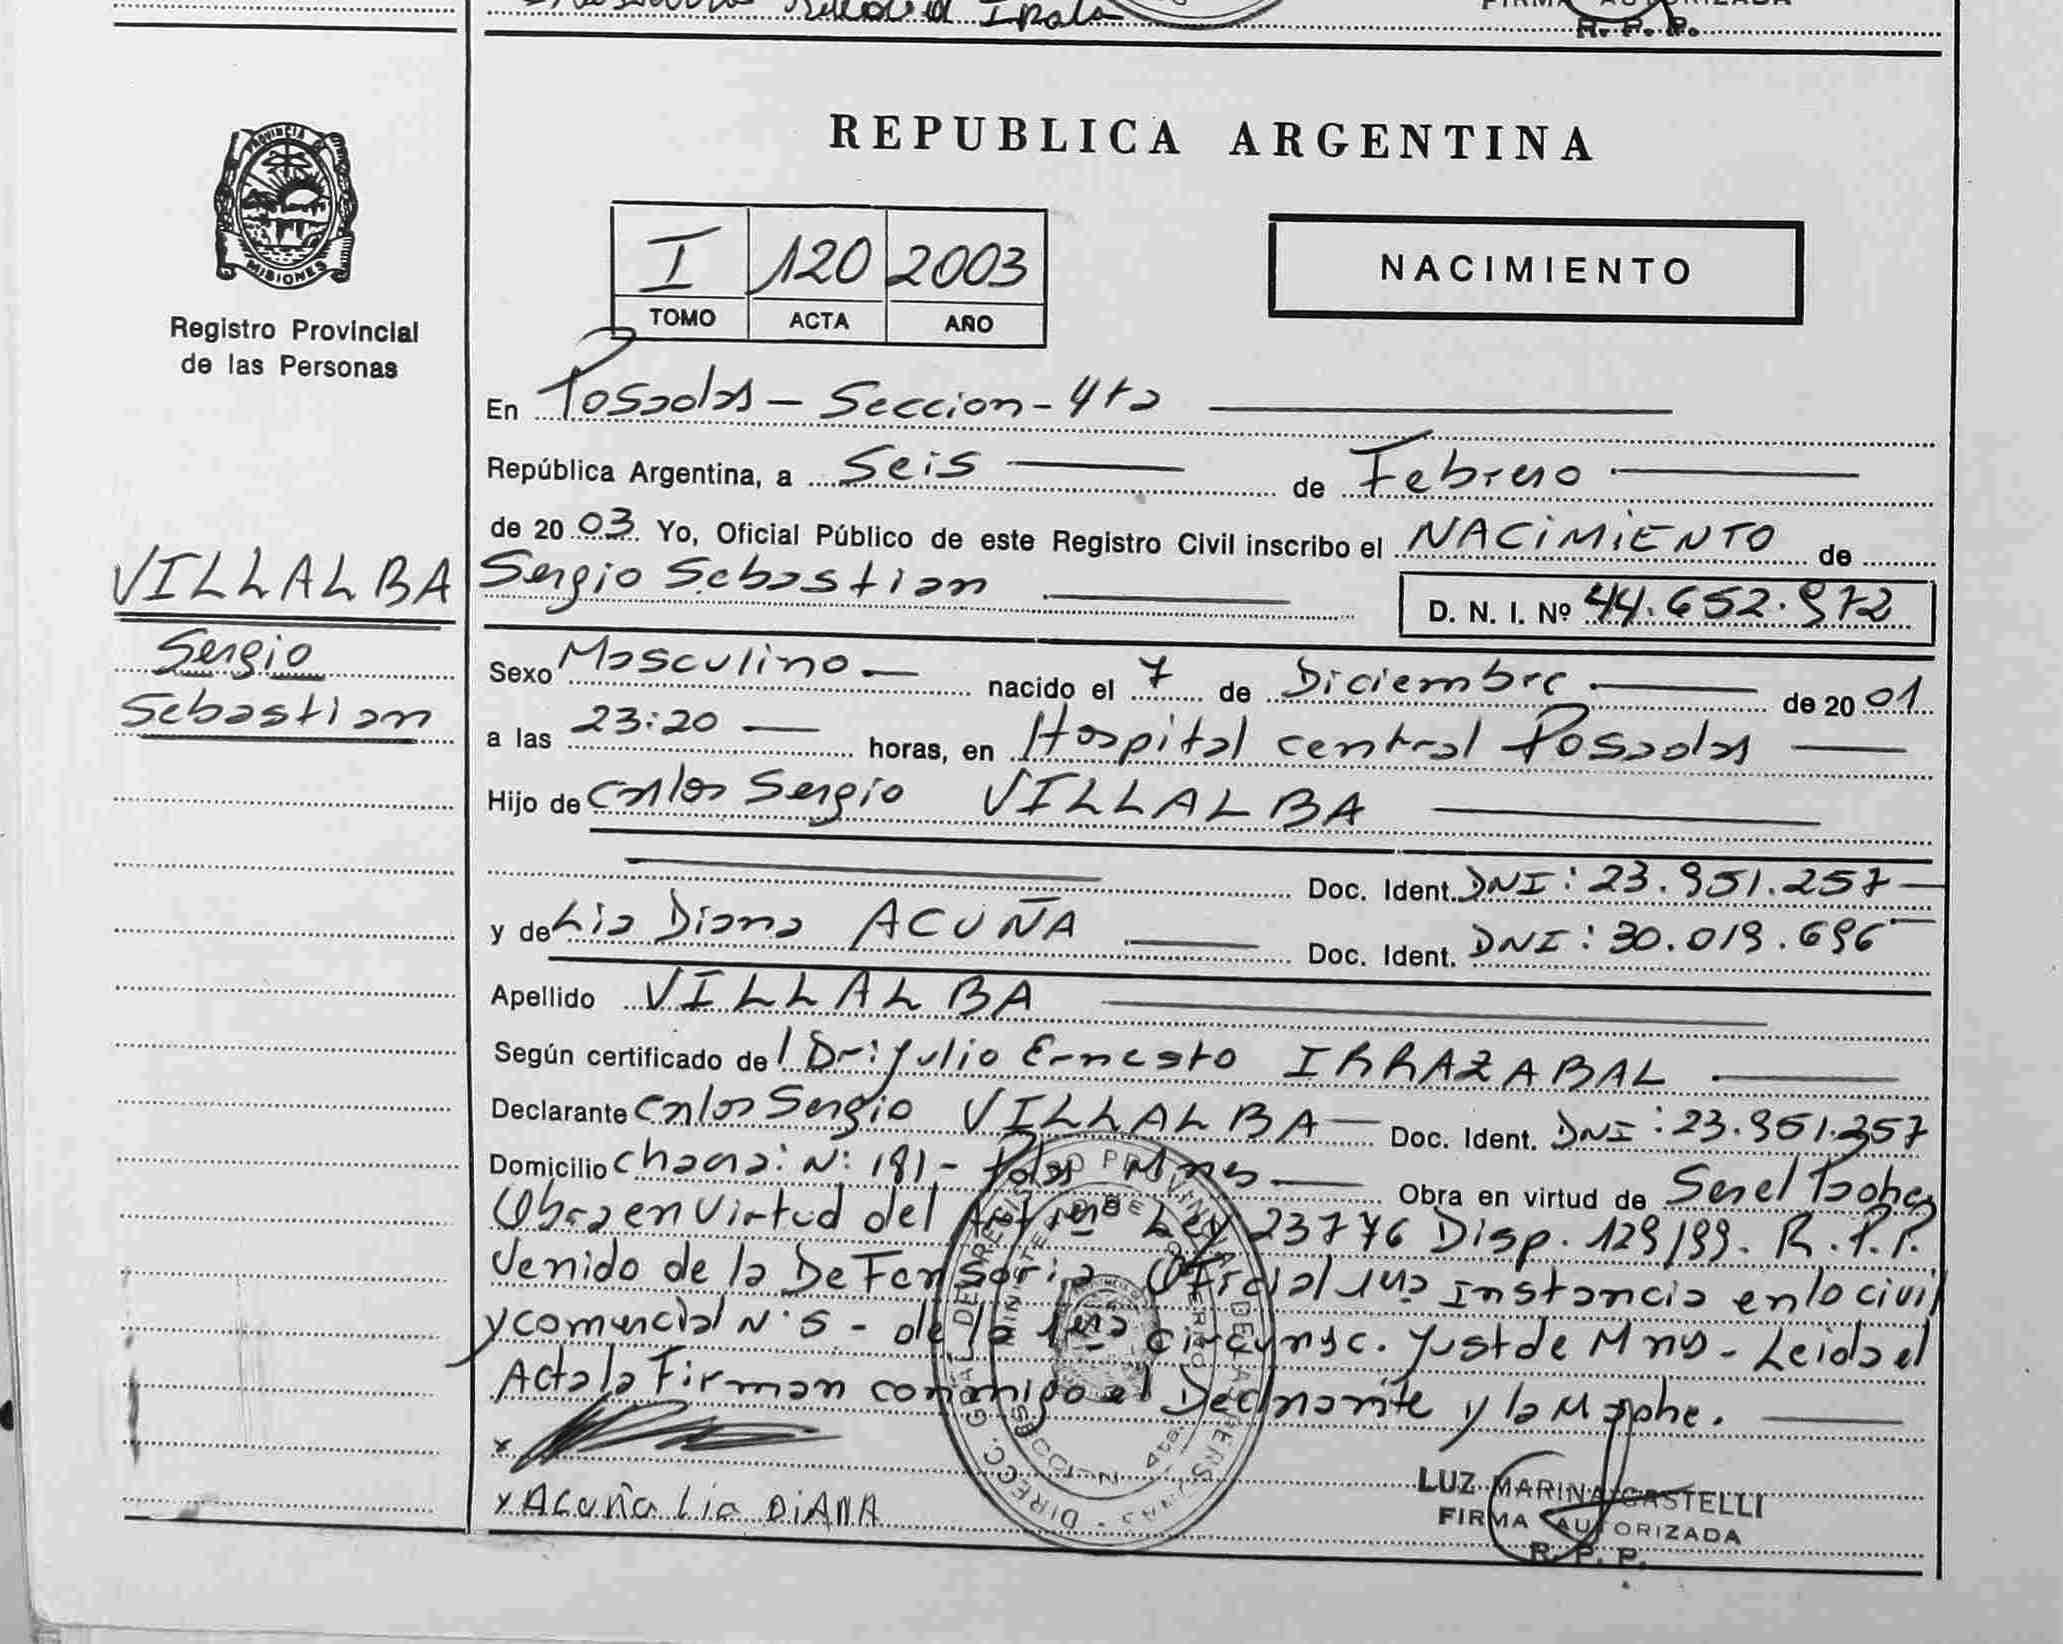 Irala
FIRMA AUTORIZADA
R. P. P.
PROVINCIA DE
MISIONES
Registro Provincial
de las Personas
REPUBLICA ARGENTINA
I 120 2003
TOMO ACTA AÑO
NACIMIENTO
En Posadas - Seccion - 4ta
República Argentina, a Seis de Febrero
de 2003 Yo, Oficial Público de este Registro Civil inscribo el NACIMIENTO de
VILLALBA Sergio Sebastian D. N. I. Nº 44.652.972
Sergio
Sebastian
Sexo Masculino nacido el 7 de Diciembre de 2001
a las 23:20 horas, en Hospital central Posadas
Hijo de Carlos Sergio VILLALBA
Doc. Ident. DNI: 23.951.257
y de Lia Diana ACUÑA Doc. Ident. DNI: 30.019.696
Apellido VILLALBA
Según certificado de l Dr: Julio Ernesto IRRAZABAL
Declarante Carlos Sergio VILLALBA Doc. Ident. DNI: 23.951.257
Domicilio chacra: N: 181 - Pdas Mnes Obra en virtud de Ser el Padre
Obra en virtud del Ley 23776 Disp. 129/99. R.P.P.
venido de la Defensoria Oficial 1era Instancia en lo civil
y comercial N° 5 - de la 1era circunsc. Just de Mns - Leida el
Acta la Firman conmigo el Declarante y la Madre.
x
x ACUÑA Lia DIANA
LUZ MARINA CASTELLI
FIRMA AUTORIZADA
R. P. P.